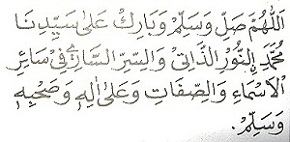 اَللّٰهُمَّ صَلِّ وَسَلِّمْ وَبَارِكْ عَلٰى سَيِّدِنَا
مُحَمَّدِ نِالنُّوْرِ الذَّاتِىْ وَالسِّرِّ السَّارِىْ فِىْ سَائِرِ
الْاَسْمَاءِ وَالصِّفَاتِ وَعَلٰى اٰلِهٖ وَصَحْبِهٖ
وَسَلِّمْ.